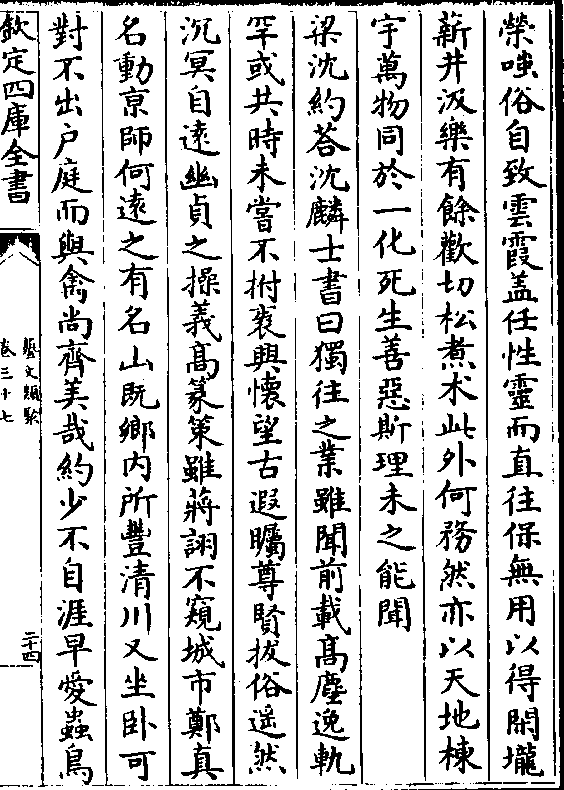 榮嗤俗自致雲霞盖任性靈而直往保無用以得閒壠
薪井汲樂有餘歡切松煮术此外何務然亦以天地棟
宇萬物同於一化死生善惡斯理未之能聞
梁沈約荅沈麟士書曰獨往之業雖聞前載髙塵逸軌
罕或共時未嘗不拊袠興懷望古遐矚尊賢拔俗遥然
沉冥自遠幽貞之操義髙篆策雖蔣詡不窺城市鄭真
名動亰師何遠之有名山既鄉内所豐清川又坐卧可
對不出户庭而與禽尚齊美哉約少不自涯早愛蟲鳥
欽定四庫全書
藝文類聚
卷三十七
二十四